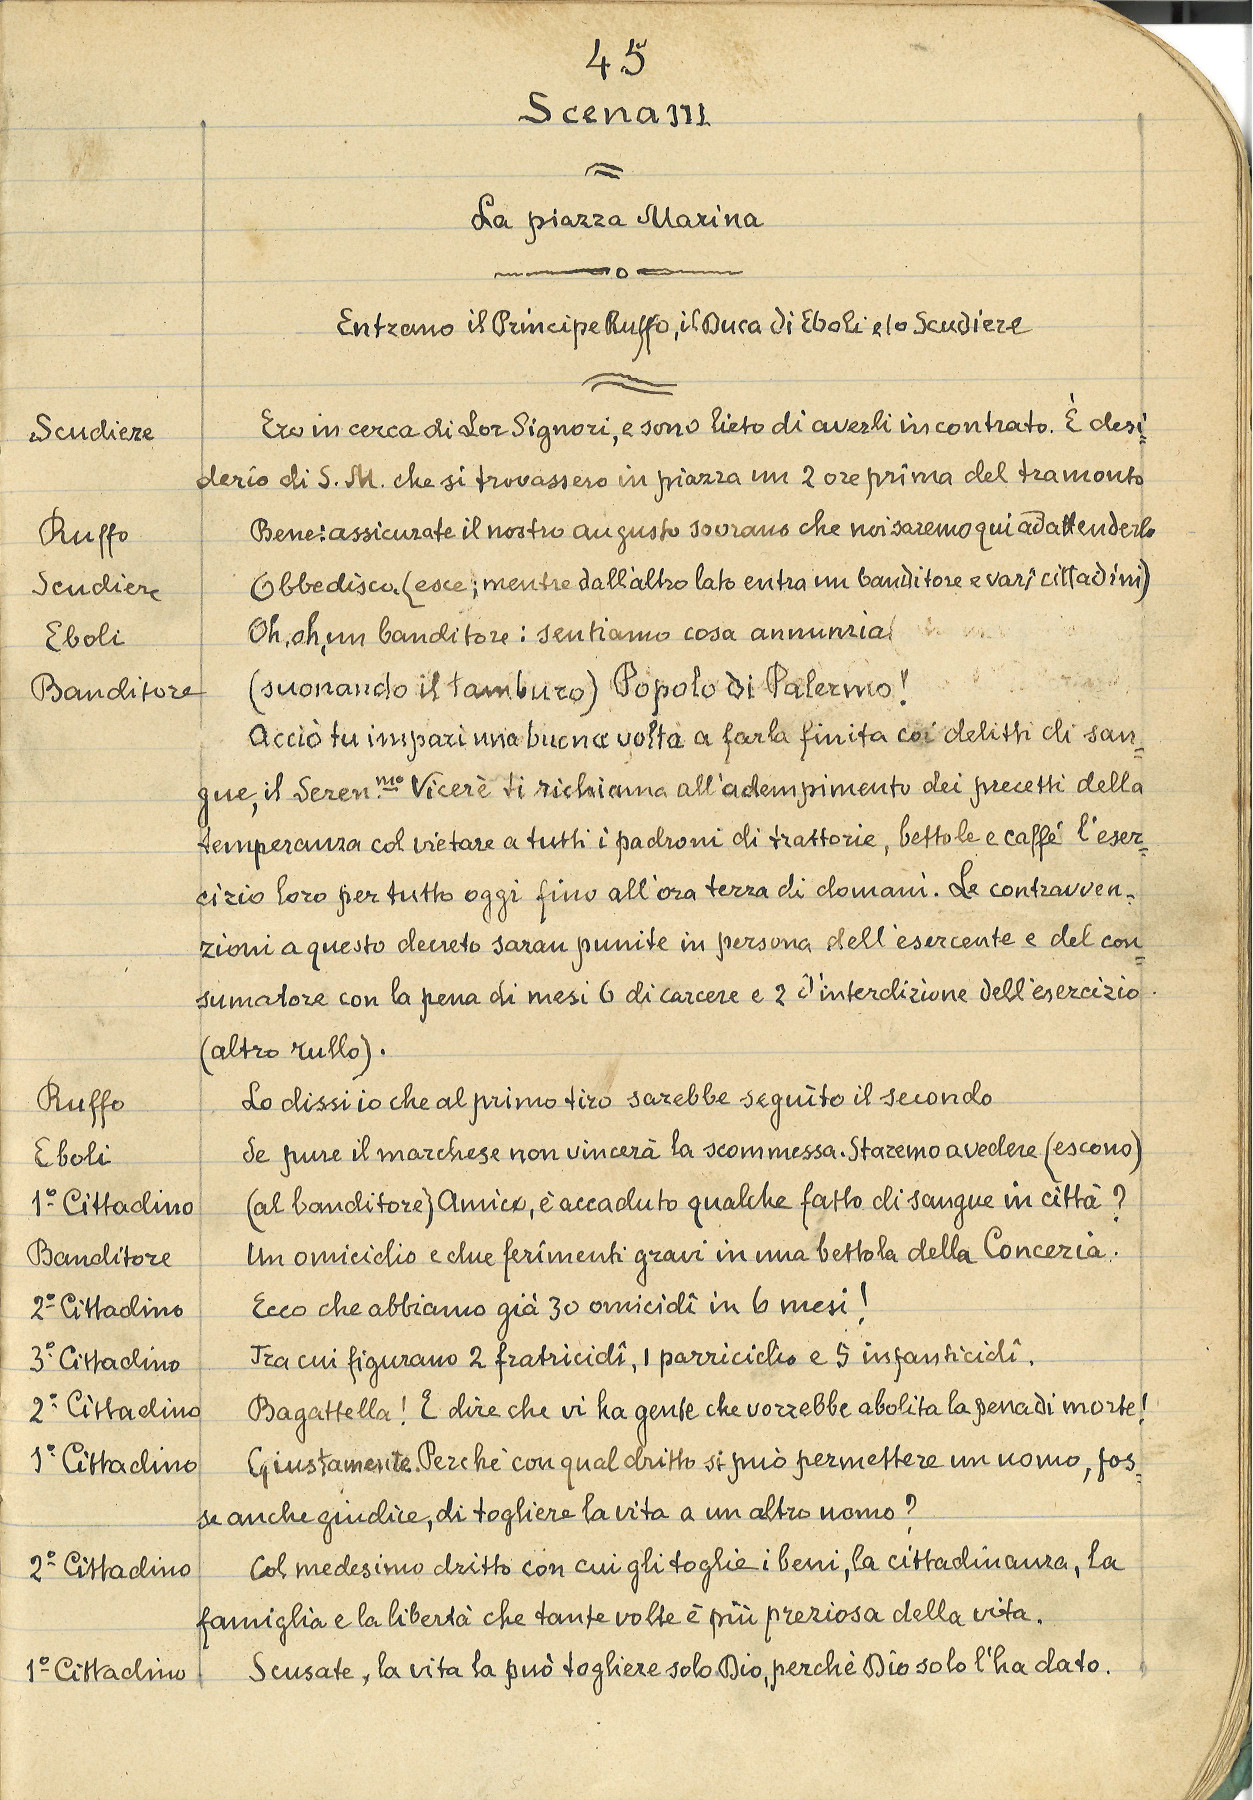 45
Scena III
La piazza Marina
Entrano il Principe Ruffo, il Duca di Eboli e lo Scudiere
Scudiere Ero in cerca di Lor Signori, e sono lieto di averli incontrato. È desi=
derio di S. M. che si trovassero in piazza un 2 ore prima del tramonto
Ruffo Bene: assicurate il nostro augusto sovrano che noi saremo qui ad attenderlo
Scudiere Obbedisco. (esce; mentre dall'altro lato entra un banditore e varî cittadini)
Eboli Oh, oh, un banditore: sentiamo cosa annunzia
Banditore (suonando il tamburo) Popolo di Palermo!
Acciò tu impari una buona volta a farla finita coi delitti di san=
gue, il Seren.mo Vicerè ti richiama all'adempimento dei precetti della
temperanza col vietare a tutti i padroni di trattorie, bettole e caffé l'eser=
cizio loro per tutto oggi fino all'ora terza di domani. Le contravven=
zioni a questo decreto saran punite in persona dell'esercente e del con=
sumatore con la pena di mesi 6 di carcere e 2 d'interdizione dell'esercizio.
(altro rullo).
Ruffo Lo dissi io che al primo tiro sarebbe seguìto il secondo
Eboli Se pure il marchese non vincerà la scommessa. Staremo a vedere (escono)
1º Cittadino (al banditore) Amico, è accaduto qualche fatto di sangue in città?
Banditore Un omicidio e due ferimenti gravi in una bettola della Conceria.
2º Cittadino Ecco che abbiamo già 30 omicidî in 6 mesi!
3º Cittadino Tra cui figurano 2 fratricidî, 1 parricidio e 5 infanticidî.
2º Cittadino Bagattella! E dire che vi ha gente che vorrebbe abolita la pena di morte!
1º Cittadino Giustamente. Perchè con qual dritto si può permettere un uomo, fos=
se anche giudice, di togliere la vita a un altro uomo?
2º Cittadino Col medesimo dritto con cui gli toglie i beni, la cittadinanza, la
famiglia e la libertà che tante volte è più preziosa della vita.
1º Cittadino Scusate, la vita la può togliere solo Dio, perchè Dio solo l'ha dato.